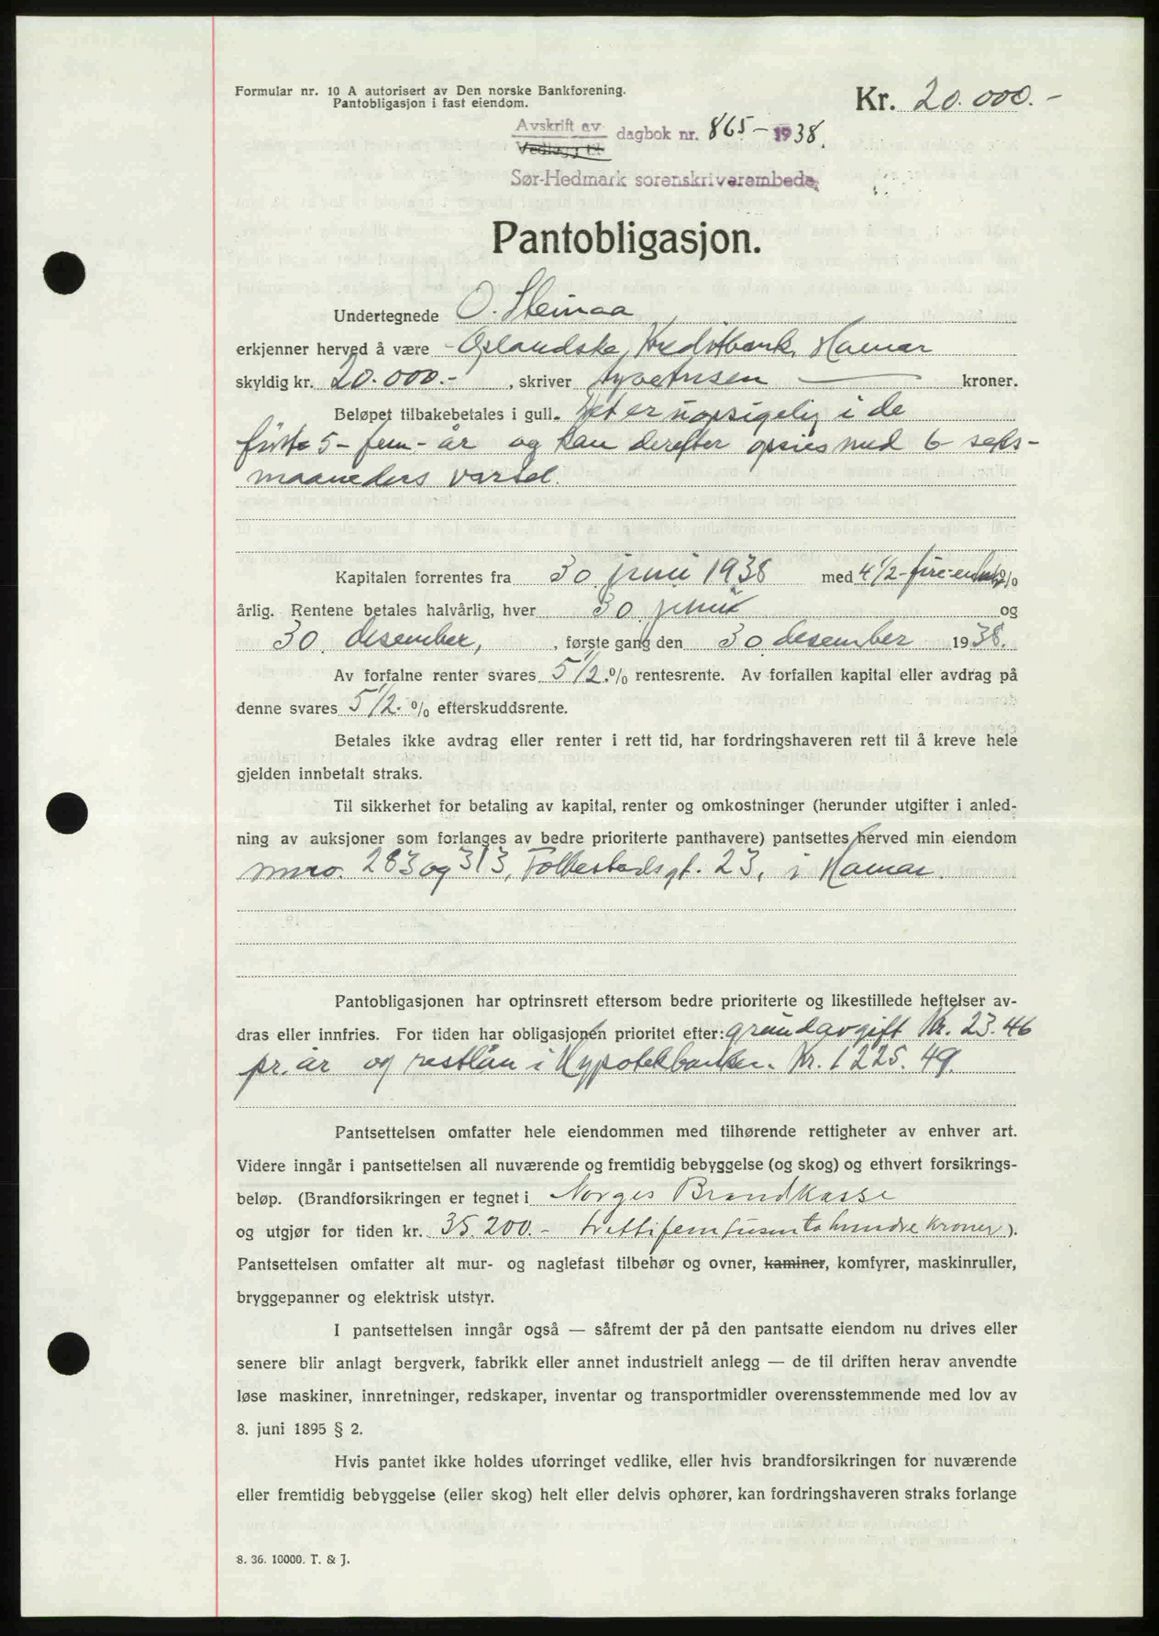 Formular nr. 10 A autorisert av Den norske Bankforening.
Pantobligasjon i fast eiendom.
Kr. 20.000.-
Avskrift av dagbok nr. 865-1938.
Vedlegg til
Sør-Hedmark sorenskriverembede
Pantobligasjon.
Undertegnede O. Steinaa
erkjenner herved å være Oplandske Kreditbank, Hamar
skyldig kr. 20.000.- , skriver kroner.
Beløpet tilbakebetales i gull. Det er uopsigelig i de
første 5- fem- år og kan derefter opsies med 6 seks-
maaneders varsel.
Kapitalen forrentes fra 30. juni 1938 med 4 1/2- fire-en halv %
årlig. Rentene betales halvårlig, hver 30. juni og
30. desember, , første gang den 30. desember 1938.
Av forfalne renter svares 5 1/2. % rentesrente. Av forfallen kapital eller avdrag på
denne svares 5 1/2. % efterskuddsrente.
Betales ikke avdrag eller renter i rett tid, har fordringshaveren rett til å kreve hele
gjelden innbetalt straks.
Til sikkerhet for betaling av kapital, renter og omkostninger (herunder utgifter i anled-
ning av auksjoner som forlanges av bedre prioriterte panthavere) pantsettes herved min eiendom
mno. 283 og 313, Folkestadsgt. 23, i Hamar.
Pantobligasjonen har optrinsrett eftersom bedre prioriterte og likestillede heftelser av-
dras eller innfries. For tiden har obligasjonen prioritet efter: grundavgift Kr. 23.46
pr. år og restlån i Hypotekbanken. Kr. 1225.49.
Pantsettelsen omfatter hele eiendommen med tilhørende rettigheter av enhver art.
Videre inngår i pantsettelsen all nuværende og fremtidig bebyggelse (og skog) og ethvert forsikrings-
beløp. (Brandforsikringen er tegnet i Norges Brandkasse
og utgjør for tiden kr. 35.200.- trettifemtusentohundre kroner ).
Pantsettelsen omfatter alt mur- og naglefast tilbehør og ovner, kaminer, komfyrer, maskinruller,
bryggepanner og elektrisk utstyr.
I pantsettelsen inngår også — såfremt der på den pantsatte eiendom nu drives eller
senere blir anlagt bergverk, fabrikk eller annet industrielt anlegg — de til driften herav anvendte
løse maskiner, innretninger, redskaper, inventar og transportmidler overensstemmende med lov av
8. juni 1895 § 2.
Hvis pantet ikke holdes uforringet vedlike, eller hvis brandforsikringen for nuværende
eller fremtidig bebyggelse (eller skog) helt eller delvis ophører, kan fordringshaveren straks forlange
8. 36. 10000. T. & J.